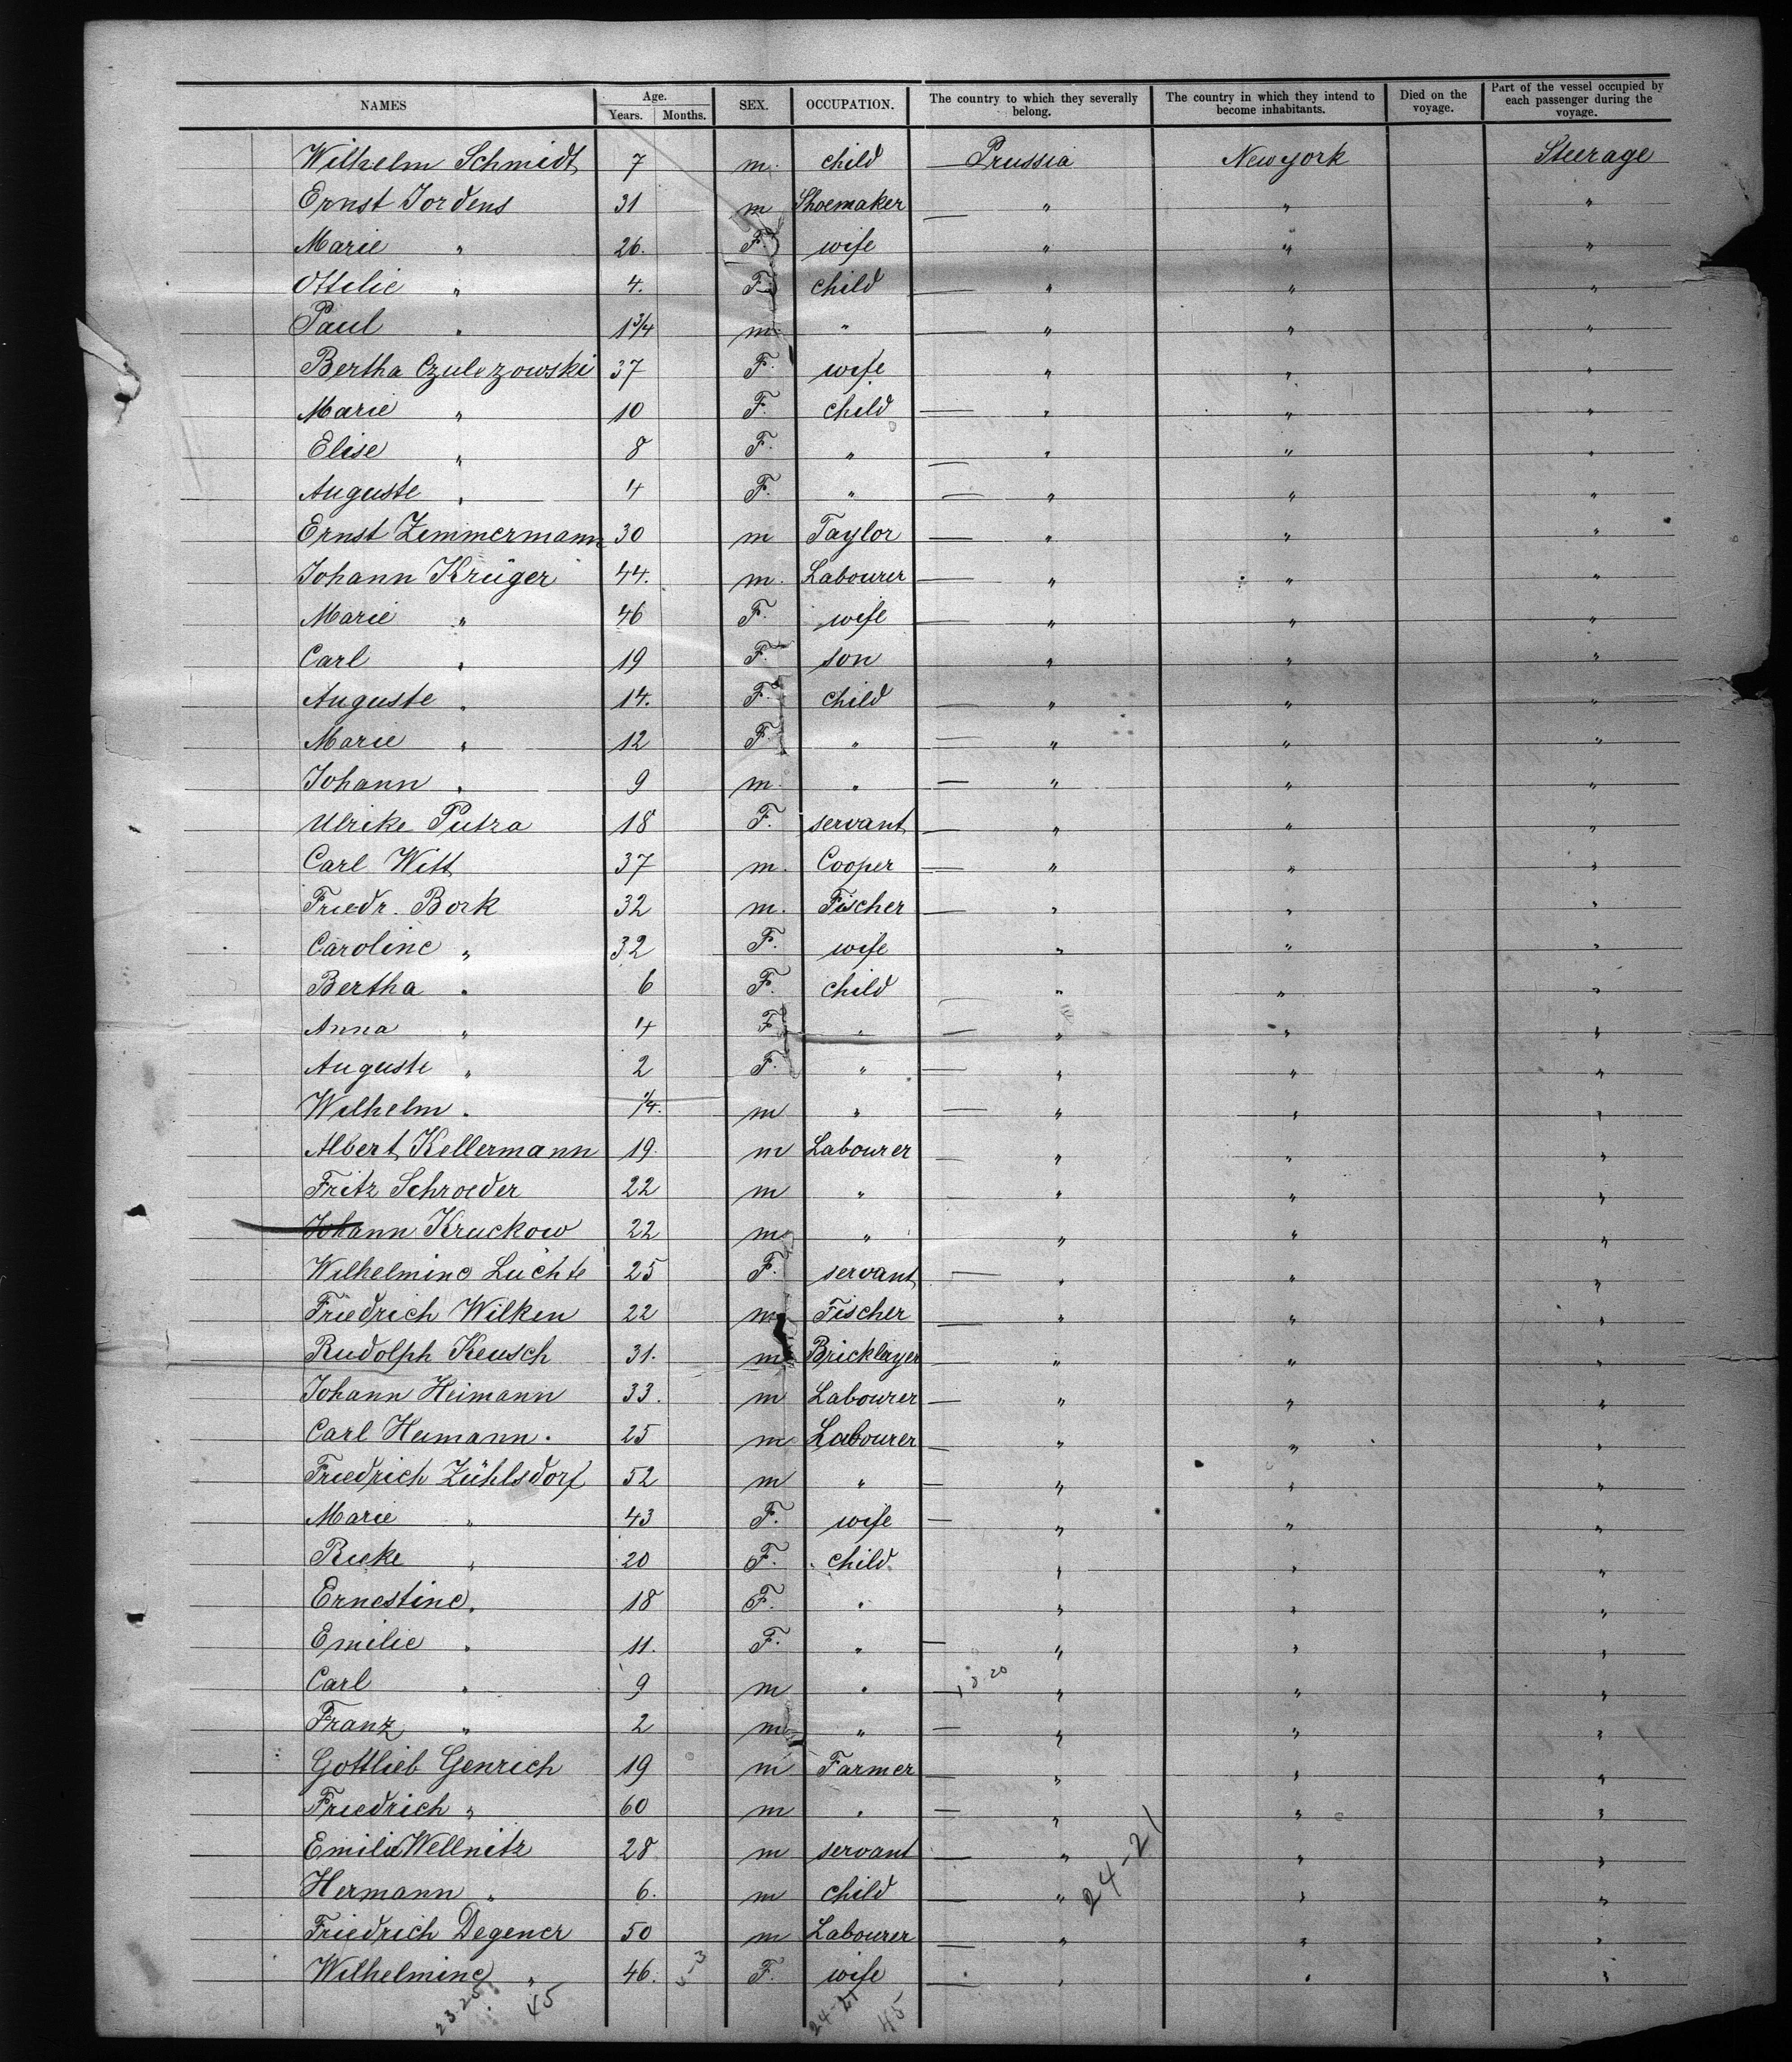 NAMES Age. Years. Months. SEX. OCCUPATION. The country to which they severally belong. The country in which they intend to become inhabitants. Died on the voyage. Part of the vessel occupied by each passenger during the voyage.
Wilhelm Schmidt 7 m. child — Prussia New york Steerage
Ernst Jordens 31 m Shoemaker — " " "
Marie " 26. F. wife " " "
Ottilie " 4. F. child — " " "
Paul " 1 3/4 m " — " " "
Bertha Czulczowski 37 F. wife " " "
Marie " 10 F. child — " " "
Elise " 8 F. " — " " "
Auguste " 4 F. " — " " "
Ernst Zimmermann 30 m Taylor — " " "
Johann Krüger 44. m. Labourer — " " "
Marie " 46 F. wife — " " "
Carl " 19 F. son " " "
Auguste " 14. F. child — " " "
Marie " 12 F " — " " "
Johann " 9 m. " — " " "
Ulrike Putza 18 F. servant — " " "
Carl Witt 37 m. Cooper — " " "
Friedr. Bork 32 m. Fischer — " " "
Caroline " 32 F. wife " " "
Bertha " 6 F. child — " " "
Anna " 4 F " — " " "
Auguste " 2 F. " — " " "
Wilhelm " 1/4. m " — " " "
Albert Kellermann 19. m Labourer — " " "
Fritz Schroeder 22 m " — " " "
Johann Kruckow 22 m " " " "
Wilhelmine Lüchte 25 F. servant — " " "
Friedrich Wilken 22 m Fischer — " " "
Rudolph Keusch 31. m Bricklayer — " " "
Johann Heimann 33. m Labourer — " " "
Carl Heimann. 25 m Labourer — " " "
Friedrich Zühlsdorf 52 m " — " " "
Marie " 43 F. wife — " " "
Rieke " 20 F. child " " "
Ernestine " 18 F. " " " "
Emilie " 11. F. " — " " "
Carl " 9 m " — " " "
Franz " 2 m " — " " "
Gottlieb Genrich 19 m Farmer — " " "
Friedrich " 60 m " — " " "
Emilie Wellnitz 28 m servant — " " "
Hermann " 6. m child — " " "
24-21
Friedrich Degener 50 m Labourer — " " "
Wilhelmine " 46. F. wife — " " "
23-25 45 24-21 45